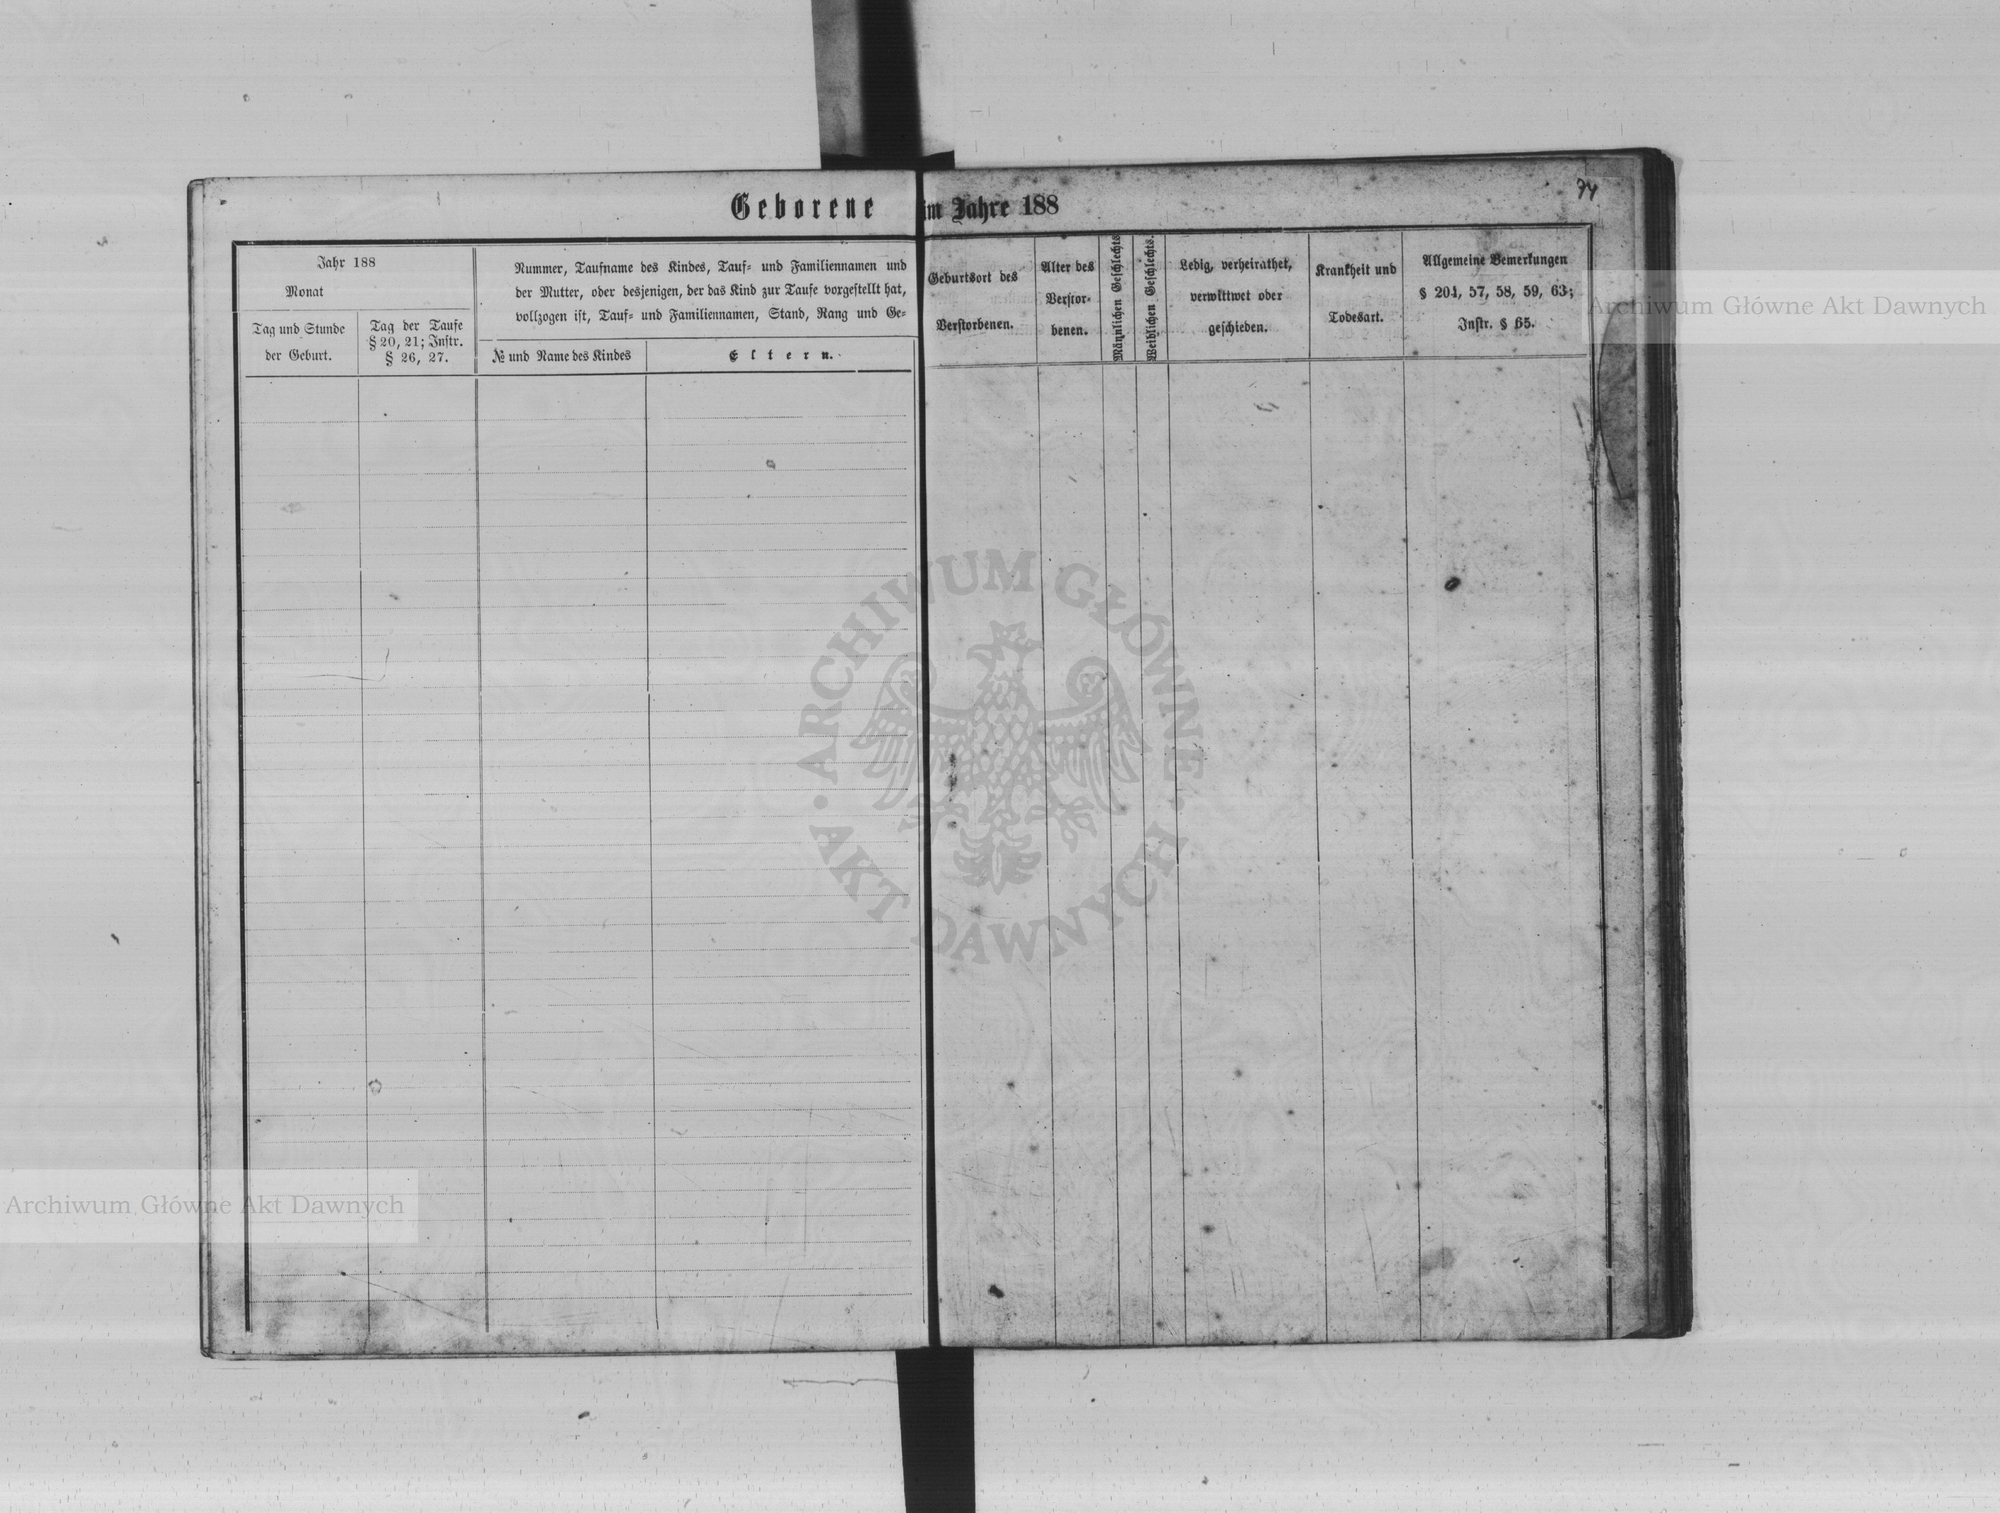 74
Geborene im Jahre 188
Jahr 188
Monat
Tag und Stunde
der Geburt.
Tag der Taufe
§ 20, 21; Instr.
§ 26, 27.
Nummer, Taufname des Kindes, Tauf- und Familiennamen und
der Mutter, oder desjenigen, der das Kind zur Taufe vorgestellt hat,
vollzogen ist, Tauf- und Familiennamen, Stand, Rang und Ge-
№ und Name des Kindes
Eltern.
Geburtsort des
Verstorbenen.
Alter des
Verstor-
benen.
Männlichen Geschlechts
Weiblichen Geschlechts.
Ledig, verheirathet,
verwittwet oder
geschieden.
Krankheit und
Todesart.
Allgemeine Bemerkungen
§ 204, 57, 58, 59, 63;
Instr. § 65.
Archiwum Główne Akt Dawnych
ARCHIWUM GŁÓWNE
· AKT DAWNYCH ·
Archiwum Główne Akt Dawnych